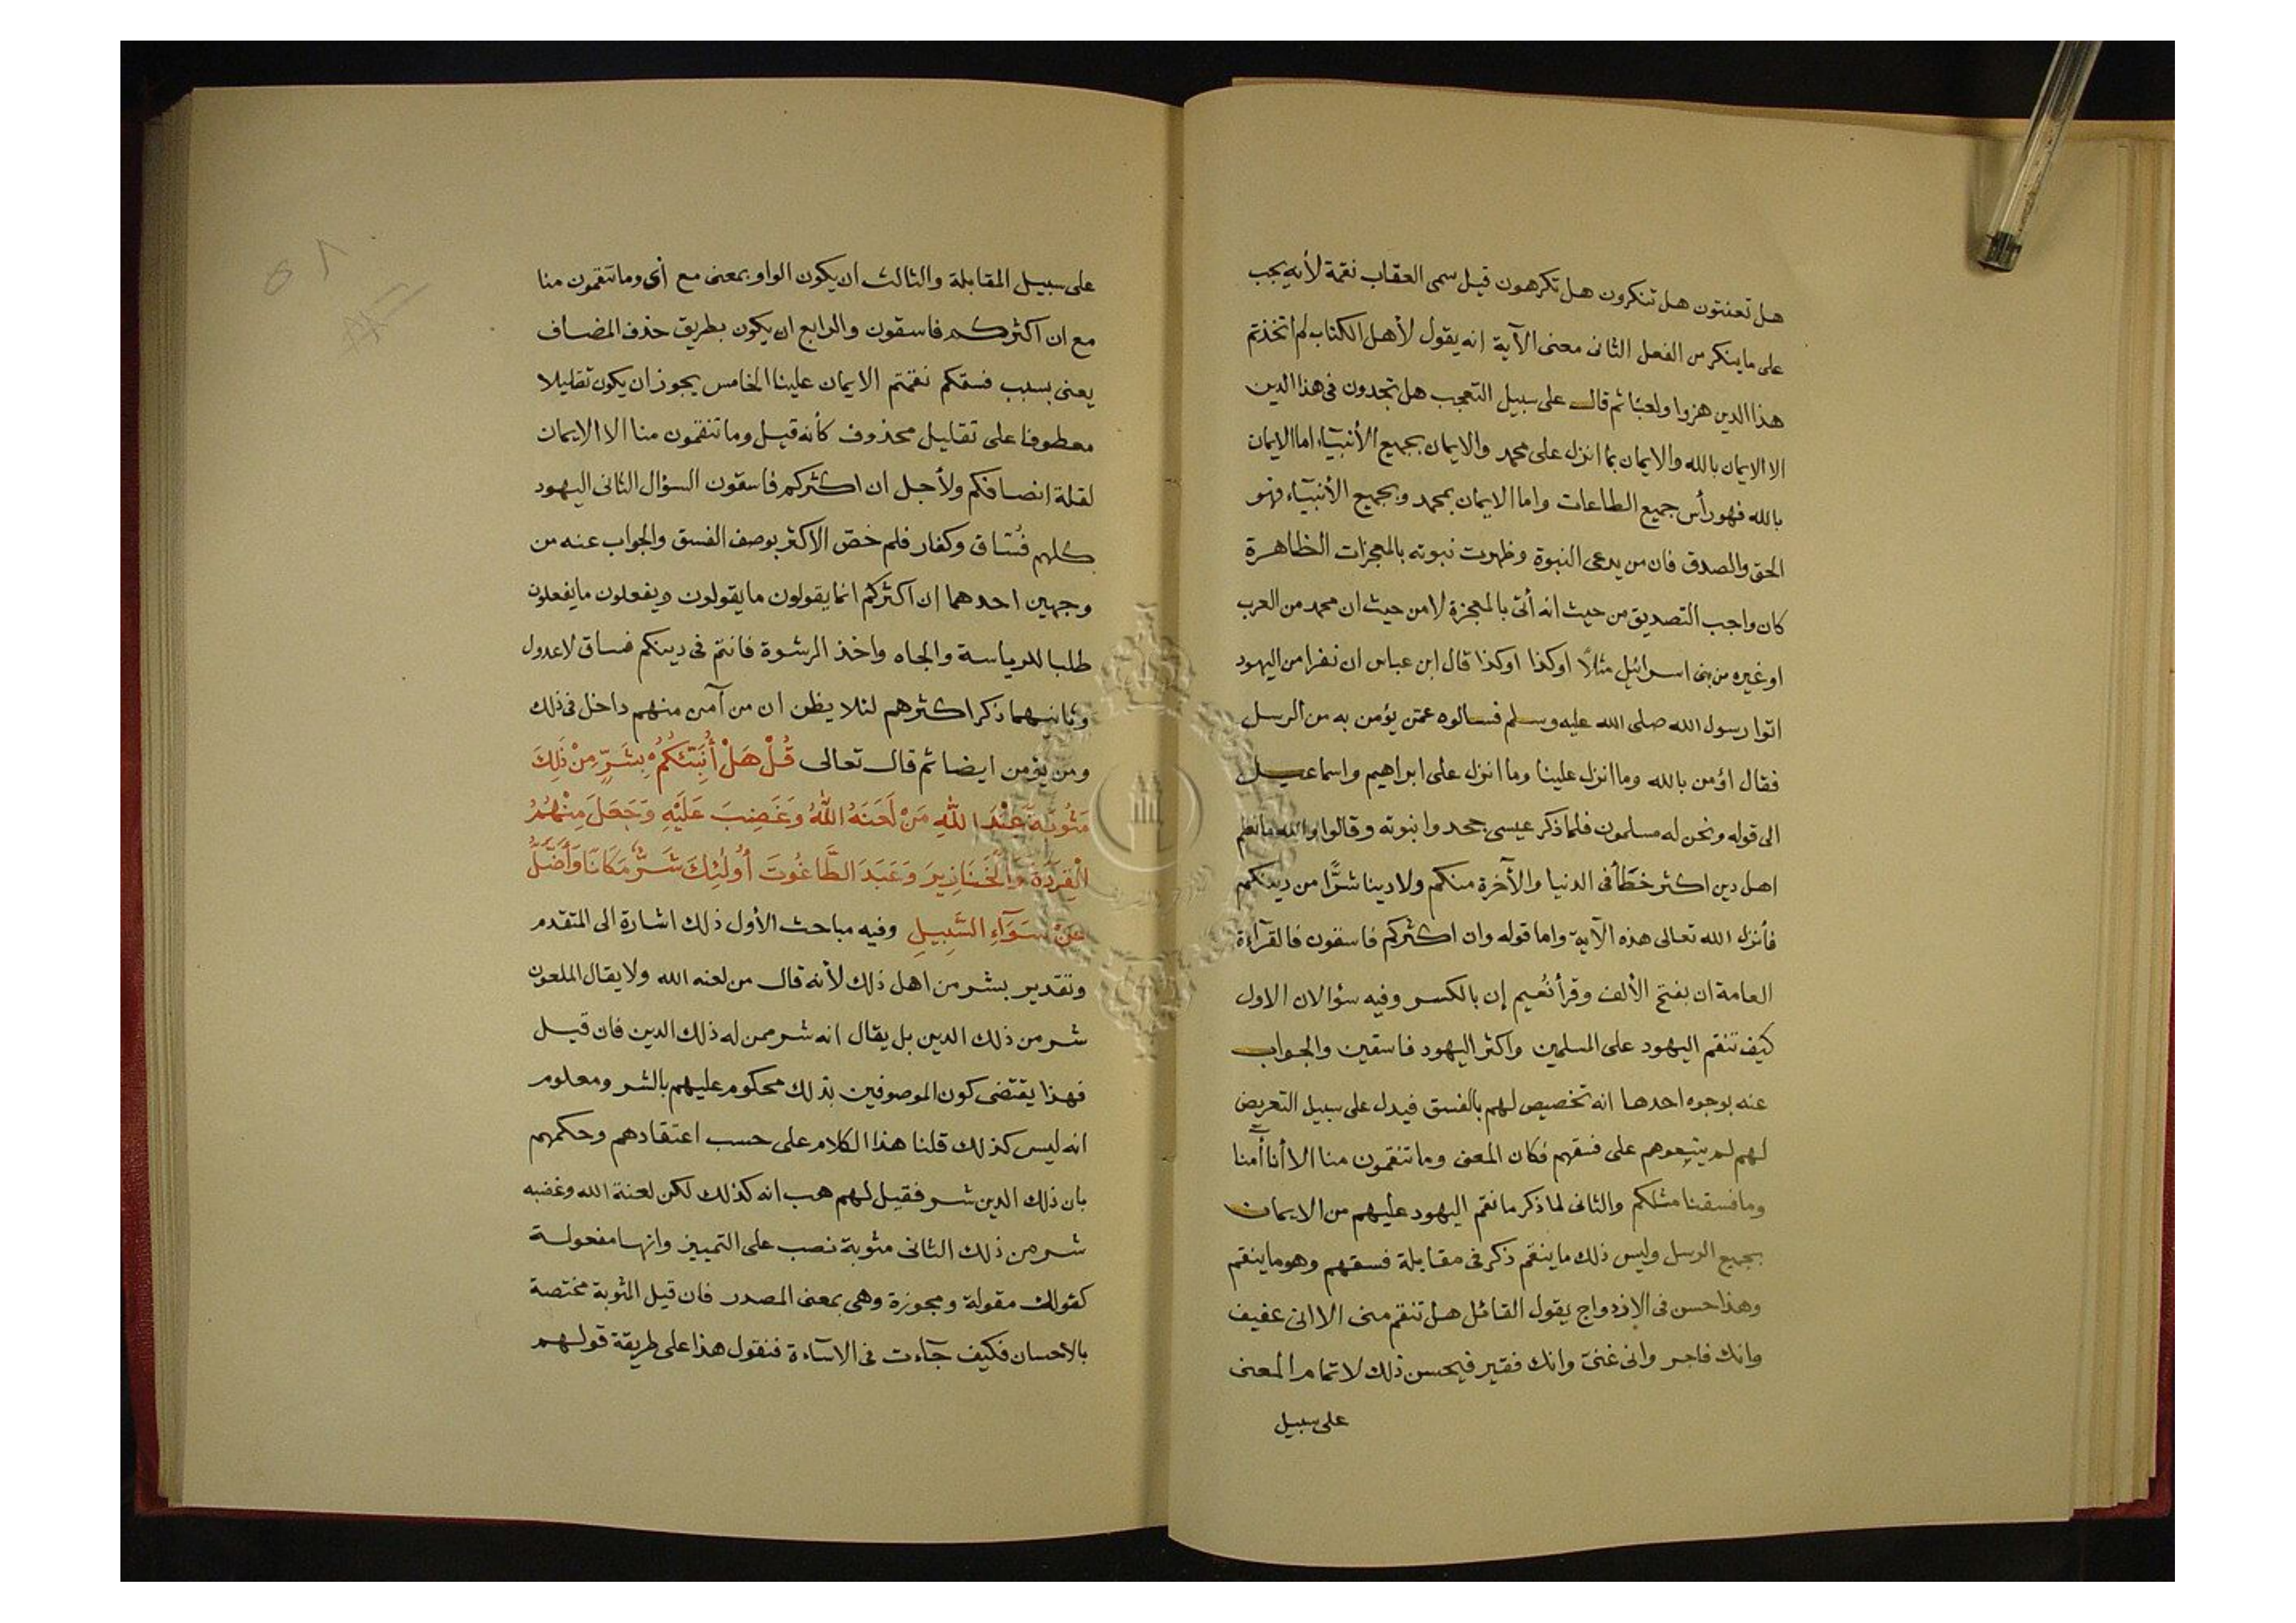 هل تعنتون هل تنكرون هل تكرهون قيل سمى العقاب نقمة لأنه يجب
على ما ينكر من الفعل الثانى معنى الآية انه يقول لأهل الكتاب لم اتخذتم
هذا الدين هزوا ولعبًا ثم قال على سبيل التعجب هل تجدون فى هذا الدين
الا الايمان بالله والايمان بما انزل على محمد والايمان بجميع الأنبيآء اما الايمان
بالله فهو رأس جميع الطاعات واما الايمان بمحمد وبجميع الأنبيآء فهو
الحق والصدق فان من يدعى النبوة وظهرت نبوته بالمعجزات الظاهرة
كان واجب التصديق من حيث انه أتى بالمعجزة لا من حيث ان محمد من العرب
او غيره من بنى اسرائيل مثلاً اوكذا اوكذا قال ابن عباس ان نفرا من اليهود
اتوا رسول الله صلى الله عليه وسلم فسالوه عمّن يؤمن به من الرسل
فقال اؤمن بالله وما انزل علينا وما انزل على ابراهيم واسماعيل
الى قوله ونحن له مسلمون فلما ذكر عيسى جحدوا نبوته وقالوا والله ما نعلم
اهل دين اكثر خطّأ فى الدنيا والآخرة منكم ولا دينا شرًّا من دينكم
فأنزل الله تعالى هذه الآية واما قوله وان اكثركم فاسقون فالقرآءة
العامة ان بفتح الألف وقرأ نُعيم إن بالكسر وفيه سؤالان الاول
كيف تنقم اليهود على المسلمين واكثر اليهود فاسقين والجواب
عنه بوجوه احدها انه تخصيص لهم بالفسق فيدل على سبيل التعريض
لهم لم يتبعوهم على فسقهم فكان المعنى وما تنقمون منا الا أنا أمنا
وما فسقنا مثلكم والثانى لما ذكر ما نقم اليهود عليهم من الايمان
بجميع الرسل وليس ذلك ما ينقم ذكر فى مقابلة فسقهم وهو ما ينقم
وهذا حسن فى الازدواج يقول القائل هل تنقم منى الا انى عفيف
وانك فاجر وانى غنىّ وانك فقير فيحسن ذلك لاتمام المعنى
على سبيل
على سبيل المقابلة والثالث ان يكون الواو بمعنى مع أى وما تنقمون منا
مع ان اكثركم فاسقون والرابع ان يكون بطريق حذف المضاف
يعنى بسبب فسقكم نقمتم الايمان علينا الخامس يجوز ان يكون تقليلا
معطوفا على تقليل محذوف كأنه قيل وما تنقمون منا الا الايمان
لقلة انصافكم ولأجل ان اكثركم فاسقون السؤال الثانى اليهود
كلهم فُسّاق وكفار فلم خصّ الاكثر بوصف الفسق والجواب عنه من
وجهين احدهما ان اكثركم انما يقولون ما يقولون ويفعلون ما يفعلون
طلبا للرياسة والجاه واخذ الرشوة فانتم فى دينكم فساق لا عدول
وثانيهما ذكر اكثرهم لئلا يظن ان من آمن منهم داخل فى ذلك
ومن يؤمن ايضا ثم قال تعالى قُلْ هَلْ أُنَبِّئُكُمْ بِشَرٍّ مِنْ ذَلِكَ
مَثُوبَةً عِنْدَ اللهِ مَنْ لَعَنَهُ اللهُ وَغَضِبَ عَلَيْهِ وَجَعَلَ مِنْهُمُ
الْقِرَدَةَ وَالْخَنَازِيرَ وَعَبَدَ الطَّاغُوتَ أُولٰئِكَ شَرٌّ مَكَانًا وَأَضَلُّ
عَنْ سَوَآءِ السَّبِيلِ وفيه مباحث الأول ذلك اشارة الى المتقدم
وتقدير بشر من اهل ذلك لأنه قال من لعنه الله ولا يقال الملعون
شر من ذلك الدين بل يقال انه شر ممن له ذلك الدين فان قيل
فهذا يقتضى كون الموصوفين بذلك محكوم عليهم بالشر ومعلوم
انه ليس كذلك قلنا هذا الكلام على حسب اعتقادهم وحكمهم
بان ذلك الدين شر فقيل لهم هب انه كذلك لكن لعنة الله وغضبه
شر من ذلك الثانى مثوبة نصب على التمييز وانها مفعولة
كقولك مقولة ومجوزة وهى بمعنى المصدر فان قيل المثوبة مختصة
بالاحسان فكيف جآءت فى الاسآءة فنقول هذا على طريقة قولهم